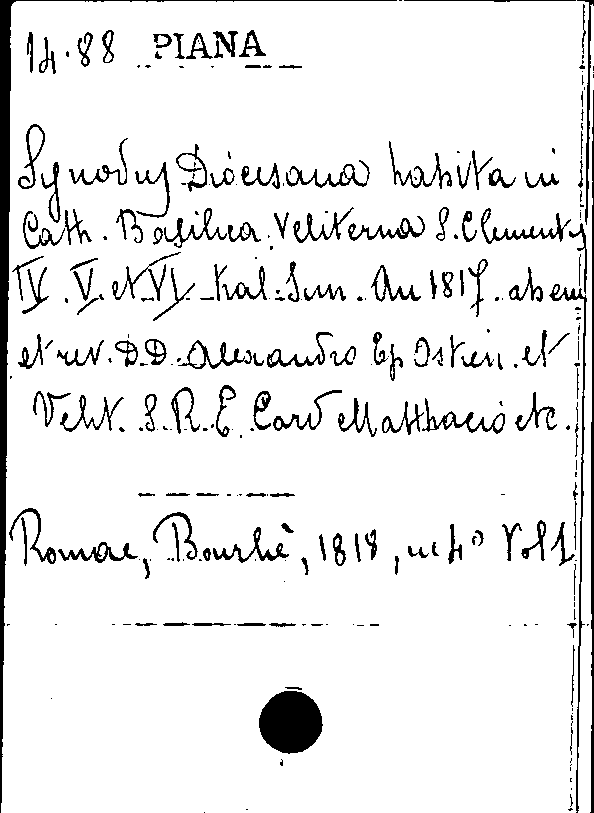 14.88 PIANA
Synodus Diocesana habita in
Cath. Basilica Veliterna S. Clementis
IV. V. et VI Kal. Jun. An 1817. ab em
et rev. D.D. Alexandro Ep Ostien. et
Velit. S. R. E. Card Matthaeio etc.
Romae, Bourliè, 1818, in 4° Vol 1